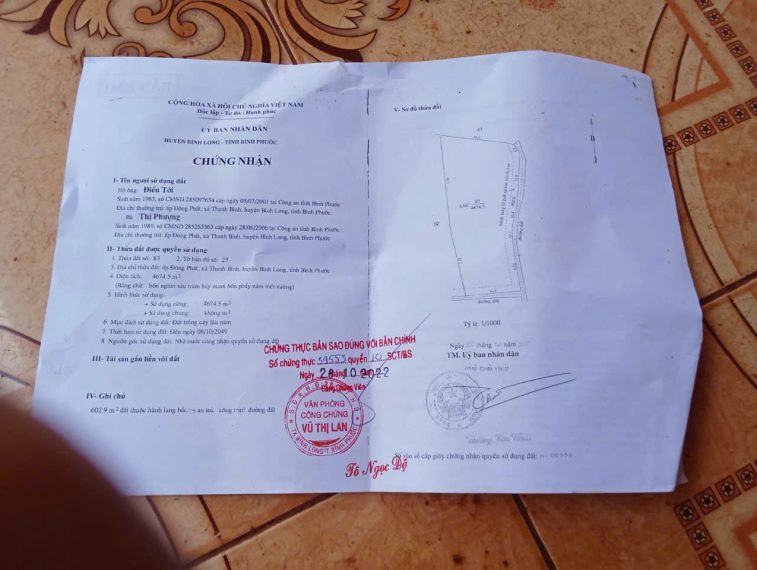 CỘNG HÒA XÃ HỘI CHỦ NGHĨA VIỆT NAM
Độc lập - Tự do - Hạnh phúc
ỦY BAN NHÂN DÂN
HUYỆN BÌNH LONG - TỈNH BÌNH PHƯỚC
CHỨNG NHẬN
I- Tên người sử dụng đất
Hộ ông Điểu Tới
Sinh năm 1983, số CMND 285097654 cấp ngày 05/07/2001 tại Công an tỉnh Bình Phước
Địa chỉ thường trú: ấp Đông Phát, xã Thanh Bình, huyện Bình Long, tỉnh Bình Phước
Bà Thị Phượng
Sinh năm 1989, số CMND 285263363 cấp ngày 28/06/2006 tại Công an tỉnh Bình Phước
Địa chỉ thường trú: ấp Đông Phát, xã Thanh Bình, huyện Bình Long, tỉnh Bình Phước
II- Thửa đất được quyền sử dụng
1. Thửa đất số: 83 2. Tờ bản đồ số: 23
3. Địa chỉ thửa đất: ấp Đông Phát, xã Thanh Bình, huyện Bình Long, tỉnh Bình Phước
4. Diện tích: 4674.5 m²
(Bằng chữ: bốn nghìn sáu trăm bảy mươi bốn phẩy năm mét vuông)
5. Hình thức sử dụng:
+ Sử dụng riêng: 4674.5 m²
+ Sử dụng chung: không m²
6. Mục đích sử dụng đất: Đất trồng cây lâu năm
7. Thời hạn sử dụng đất: Đến ngày 08/10/2049
8. Nguồn gốc sử dụng đất: Nhà nước công nhận quyền sử dụng đất
III- Tài sản gắn liền với đất
IV- Ghi chú
602.9 m² đất thuộc hành lang bảo vệ an toàn công trình đường đất
CHỨNG THỰC BẢN SAO ĐÚNG VỚI BẢN CHÍNH
Số chứng thực 59553 quyển 10 SCT/BS
Ngày 26 tháng 10 2022
Công Chứng Viên
VĂN PHÒNG
CÔNG CHỨNG
VŨ THỊ LAN
TX.BÌNH LONG-T.BÌNH PHƯỚC
Tô Ngọc Độ
V- Sơ đồ thửa đất
47
B
LNC
83
4674.5
92
đường đất
đường đất
Tỷ lệ: 1/1000
Ngày
TM. Uỷ ban nhân dân
PHÓ CHỦ TỊCH
Số vào sổ cấp giấy chứng nhận quyền sử dụng đất: